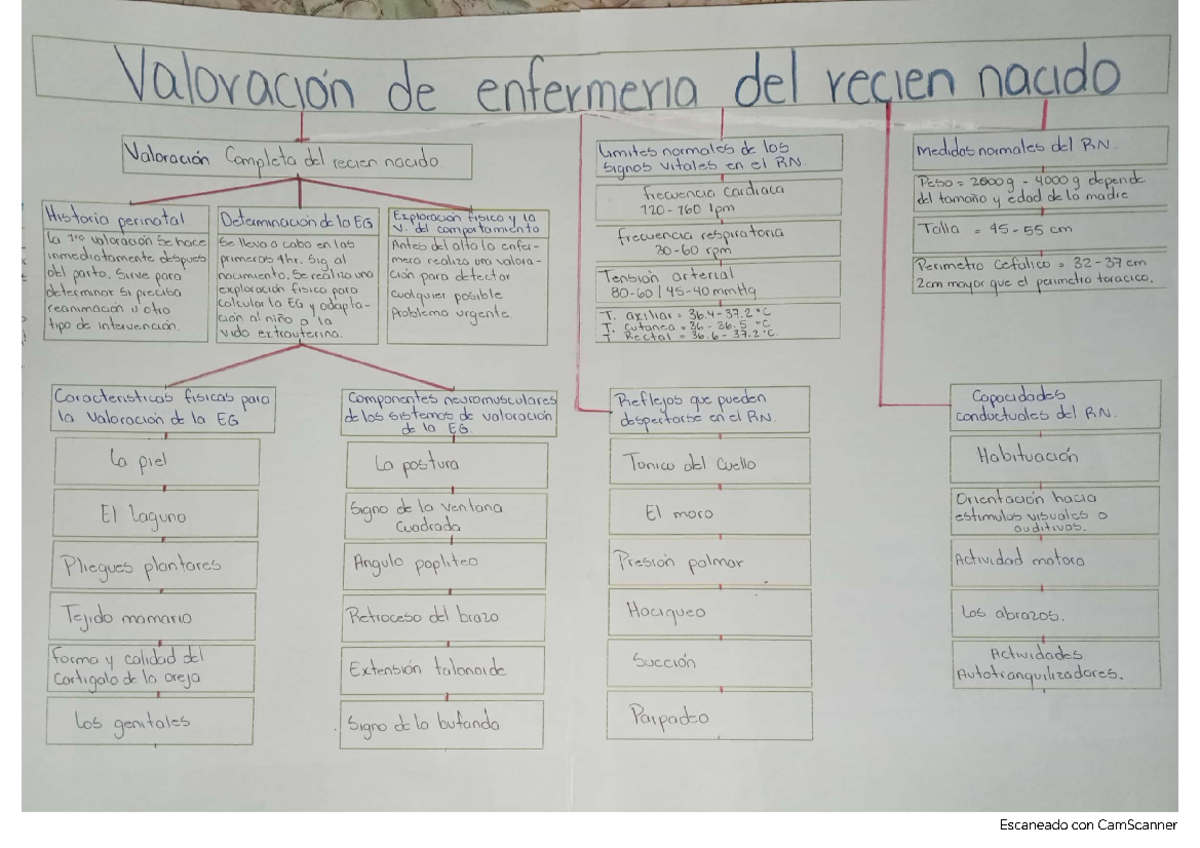 Valoración de enfermeria del recien nacido
Valoración Completa del recien nacido
Historia perinatal
La 1ra valoración se hace
inmediatamente despues
del parto. Sirve para
determinar si precisa
reanimación u otro
tipo de intervención.
Determinación de la EG
Se lleva a cabo en las
primeros 4hr. Sig al
nacimiento. Se realiza una
exploración fisica para
calcular la EG y adapta-
ción al niño a la
vida extrauterina.
Exploración fisica y la
V. del comportamiento
Antes del alta la enfer-
mera realiza una valora-
ción para detectar
cualquier posible
problema urgente.
Caracteristicas fisicas para
la valoración de la EG
La piel
El laguno
Pliegues plantares
Tejido mamario
Forma y calidad del
Cartigalo de la oreja
Los genitales
Componentes neuromusculares
de los sistemas de valoración
de la EG.
La postura
Signo de la ventana
Cuadrada
Angulo popliteo
Retroceso del brazo
Extensión talonoide
Signo de la bufanda
Limites normales de los
signos vitales en el RN.
Frecuencia Cardiaca
120-160 lpm
frecuencia respiratoria
30-60 rpm
Tensión arterial
80-60 / 45-40 mmHg
T. axiliar = 36.4-37.2°C
T. Cutanea = 36 - 36.5 °C
T Rectal = 36.6 - 37.2°C.
Reflejos que pueden
despertarse en el RN.
Tonico del Cuello
El moro
Presión palmar
Hociqueo
Succión
Parpadeo
Medidas normales del RN.
Peso = 2500g - 4000g depende
del tamaño y edad de la madre
Talla = 45-55 cm
Perimetro Cefalico = 32-37 cm
2cm mayor que el perimetro toracico.
Capacidades
conductuales del RN.
Habituación
Orientación hacia
estimulos visuales o
auditivos.
Actividad motora
Los abrazos.
Actividades
Autotranquilizadores.
Escaneado con CamScanner